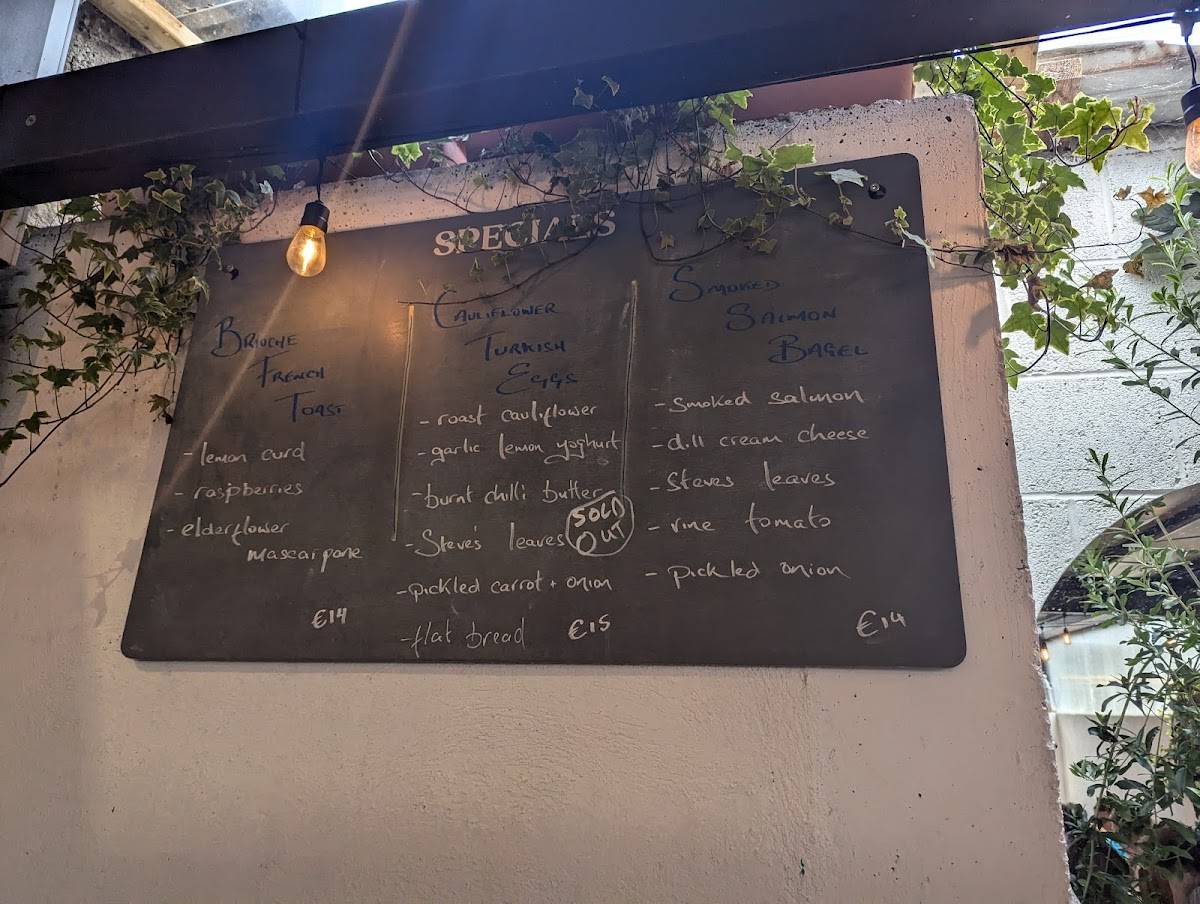 SPECIALS
BRIOCHE
FRENCH
TOAST
- lemon curd
- raspberries
- elderflower
mascarpone
€14
CAULIFLOWER
TURKISH
EGGS
- roast cauliflower
- garlic lemon yoghurt
- burnt chilli butter
- Steve's leaves
SOLD
OUT
- pickled carrot + onion
- flat bread
€15
SMOKED
SALMON
BAGEL
- Smoked salmon
- dill cream cheese
- Steves leaves
- vine tomato
- pickled onion
€14